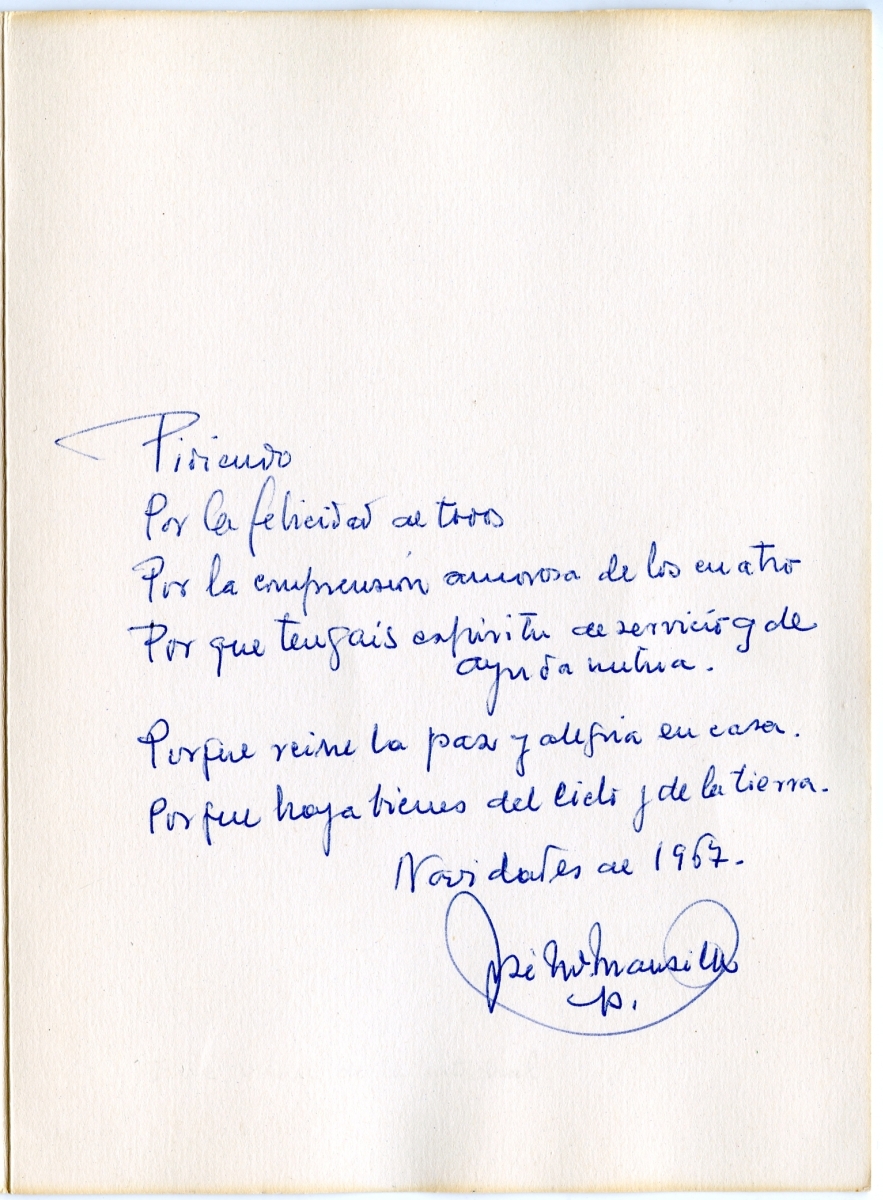 Pidiendo
Por la felicidad de todos
Por la comprensión amorosa de los cuatro
Por que tengais espiritu de servicio y de
ayuda mutua.
Porque reine la paz y alegria en casa.
Porque haya bienes del Cielo y de la tierra.
Navidades de 1967.
José Mª Mansilla
p.